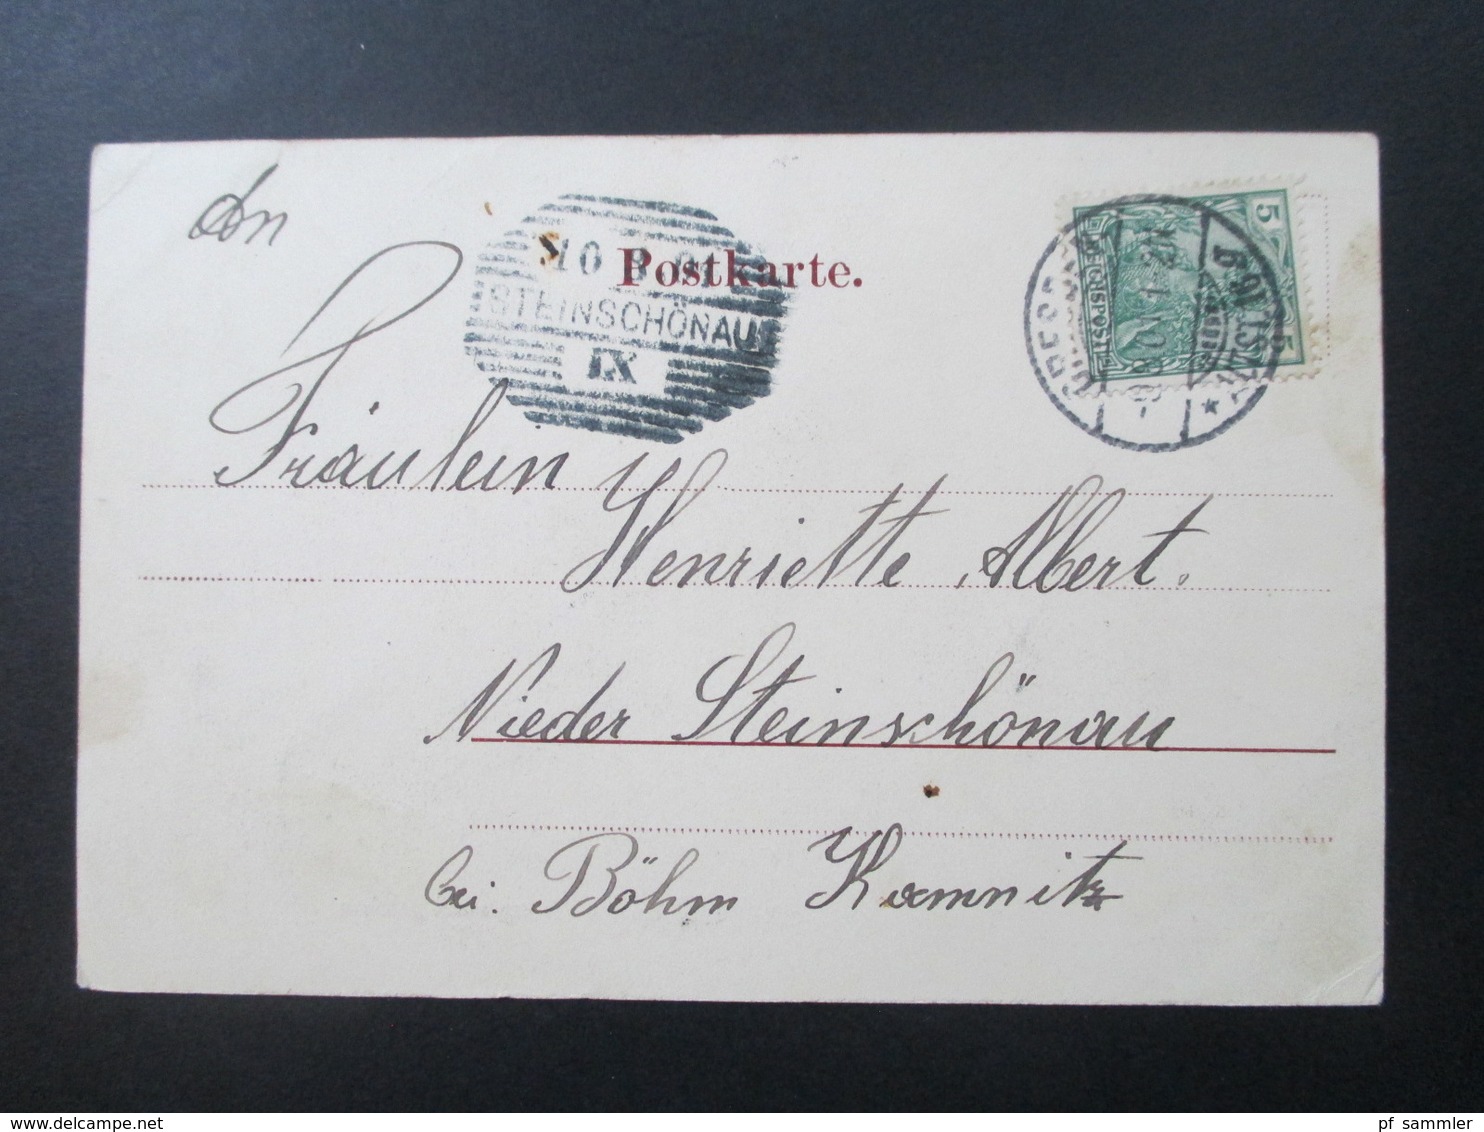 An
10
Postkarte.
STEINSCHÖNAU
IX
5
REICHSPOST
5
Fräulein
Henriette Albert.
Nieder Steinschönau
bei Böhm Kamnitz
pf sammler